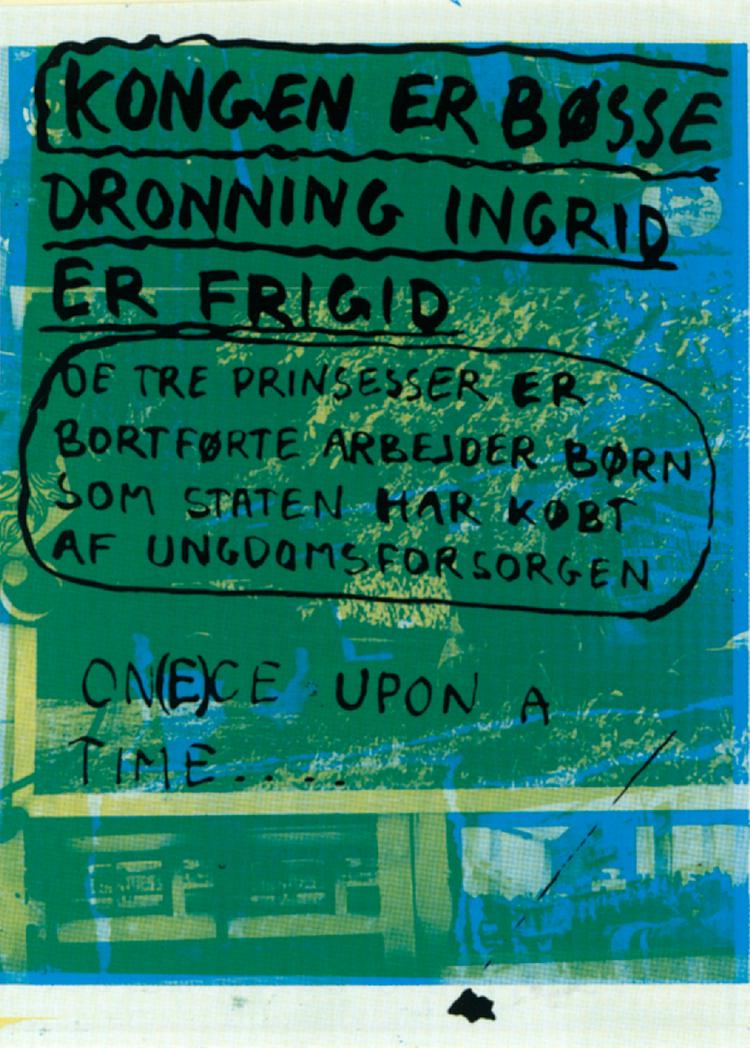 KONGEN ER BØSSE
DRONNING INGRID
ER FRIGID
DE TRE PRINSESSER ER
BORTFØRTE ARBEJDER BØRN
SOM STATEN HAR KØBT
AF UNGDOMSFORSORGEN
ON(E)CE UPON A
TIME.....